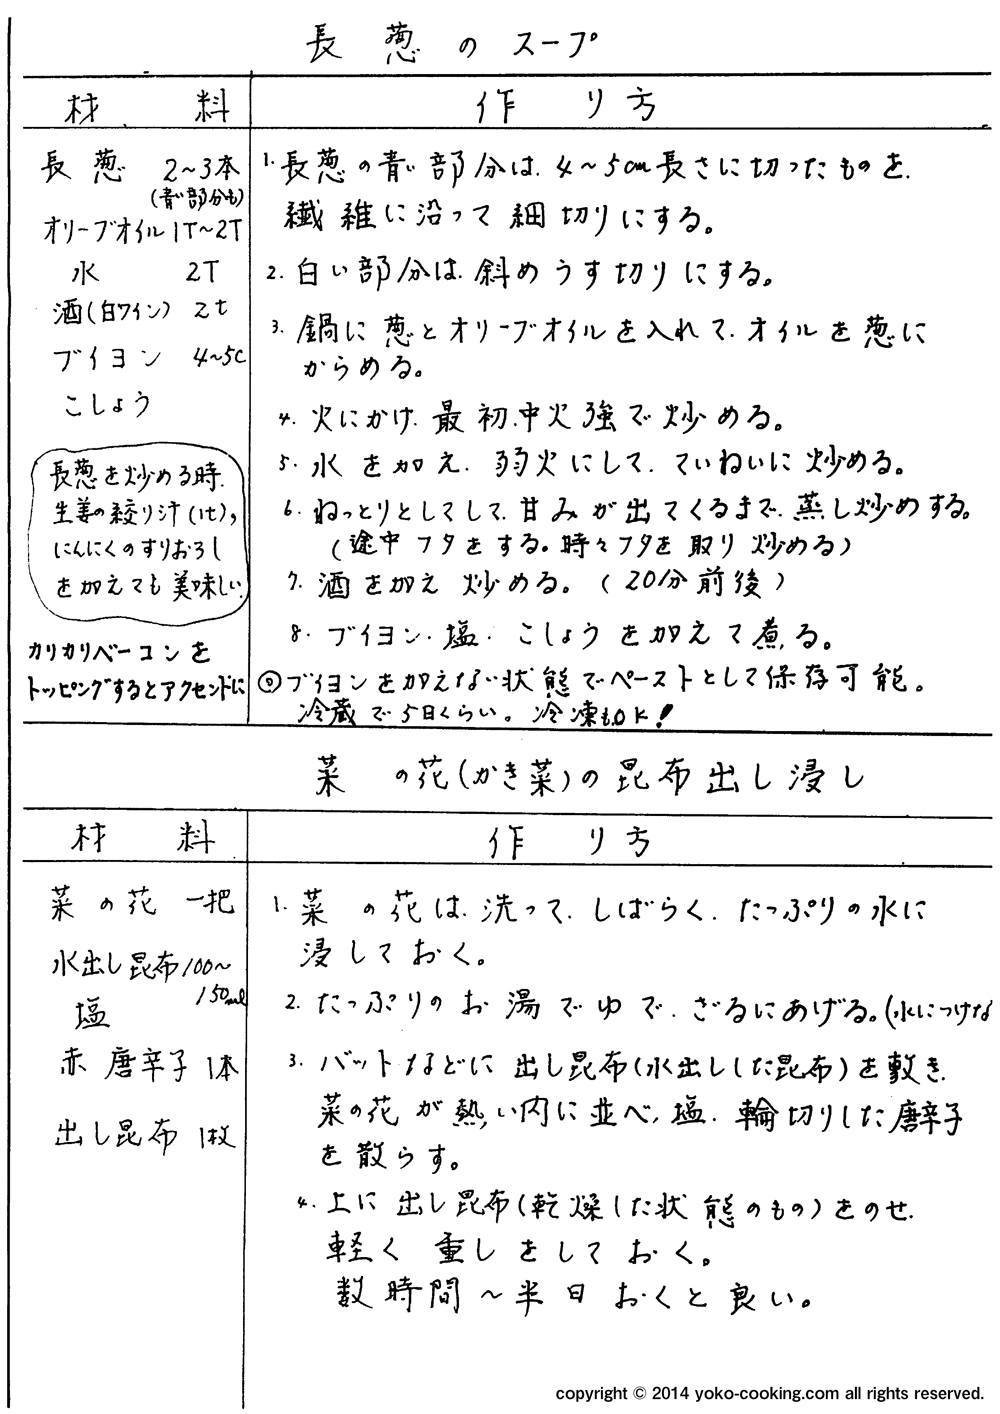 長葱のスープ
材料
作り方
長葱 2～3本
(青い部分も)
オリーブオイル 1T～2T
水 2T
酒(白ワイン) 2t
ブイヨン 4～5C
こしょう
長葱を炒める時、
生姜の絞り汁(1t),
にんにくのすりおろし
を加えても美味しい。
カリカリベーコンを
トッピングするとアクセントに
1. 長葱の青い部分は、4～5cm長さに切ったものを、
繊維に沿って細切りにする。
2. 白い部分は、斜めうす切りにする。
3. 鍋に葱とオリーブオイルを入れて、オイルを葱に
からめる。
4. 火にかけ、最初、中火強で炒める。
5. 水を加え、弱火にして、ていねいに炒める。
6. ねっとりとしてして、甘みが出てくるまで、蒸し炒めする。
(途中フタをする。時々フタを取り炒める)
7. 酒を加え炒める。(20分前後)
8. ブイヨン、塩、こしょうを加えて煮る。
ブイヨンを加えない状態でペーストとして保存可能。
冷蔵で5日くらい。冷凍もOK!
菜の花(かき菜)の昆布出し浸し
材料
作り方
菜の花 一把
水出し昆布 100～
150ml
塩
赤唐辛子 1本
出し昆布 1枚
1. 菜の花は、洗って、しばらく、たっぷりの水に
浸しておく。
2. たっぷりのお湯でゆで、ざるにあげる。(水につけな
3. バットなどに出し昆布(水出しした昆布)を敷き、
菜の花が熱い内に並べ、塩、輪切りした唐辛子
を散らす。
4. 上に出し昆布(乾燥した状態のもの)をのせ、
軽く重しをしておく。
数時間～半日おくと良い。
copyright © 2014 yoko-cooking.com all rights reserved.